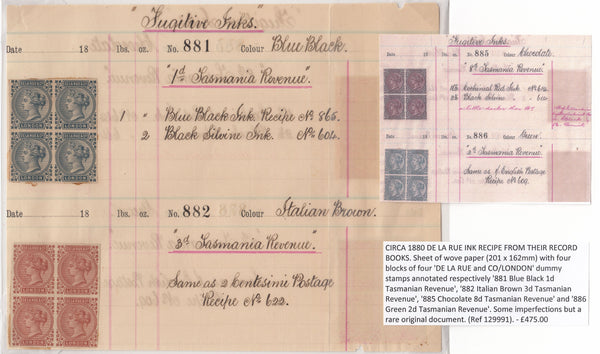 "Fugitive Inks."
Date 18 lbs. oz. No. 881 Colour Blue Black.
"1d Tasmania Revenue."
1 " Blue Black Ink Recipe No 865.
2 Black Silvine Ink. No 604.
Date 18 lbs. oz. No. 882 Colour Italian Brown.
"3d Tasmania Revenue".
Same as 2 Centesimi Postage
Recipe No 622.
"Fugitive Inks."
No. 885 Colour Chocolate.
"8d Tasmania Revenue"
Black Silvine
No. 886 Colour Green.
"2d Tasmania Revenue".
Same as English Postage
Recipe No 609.
LONDON
LONDON
LONDON
LONDON
CIRCA 1880 DE LA RUE INK RECIPE FROM THEIR RECORD
BOOKS. Sheet of wove paper (201 x 162mm) with four
blocks of four 'DE LA RUE and CO/LONDON' dummy
stamps annotated respectively '881 Blue Black 1d
Tasmanian Revenue', '882 Italian Brown 3d Tasmanian
Revenue', '885 Chocolate 8d Tasmanian Revenue' and '886
Green 2d Tasmanian Revenue'. Some imperfections but a
rare original document. (Ref 129991). - £475.00